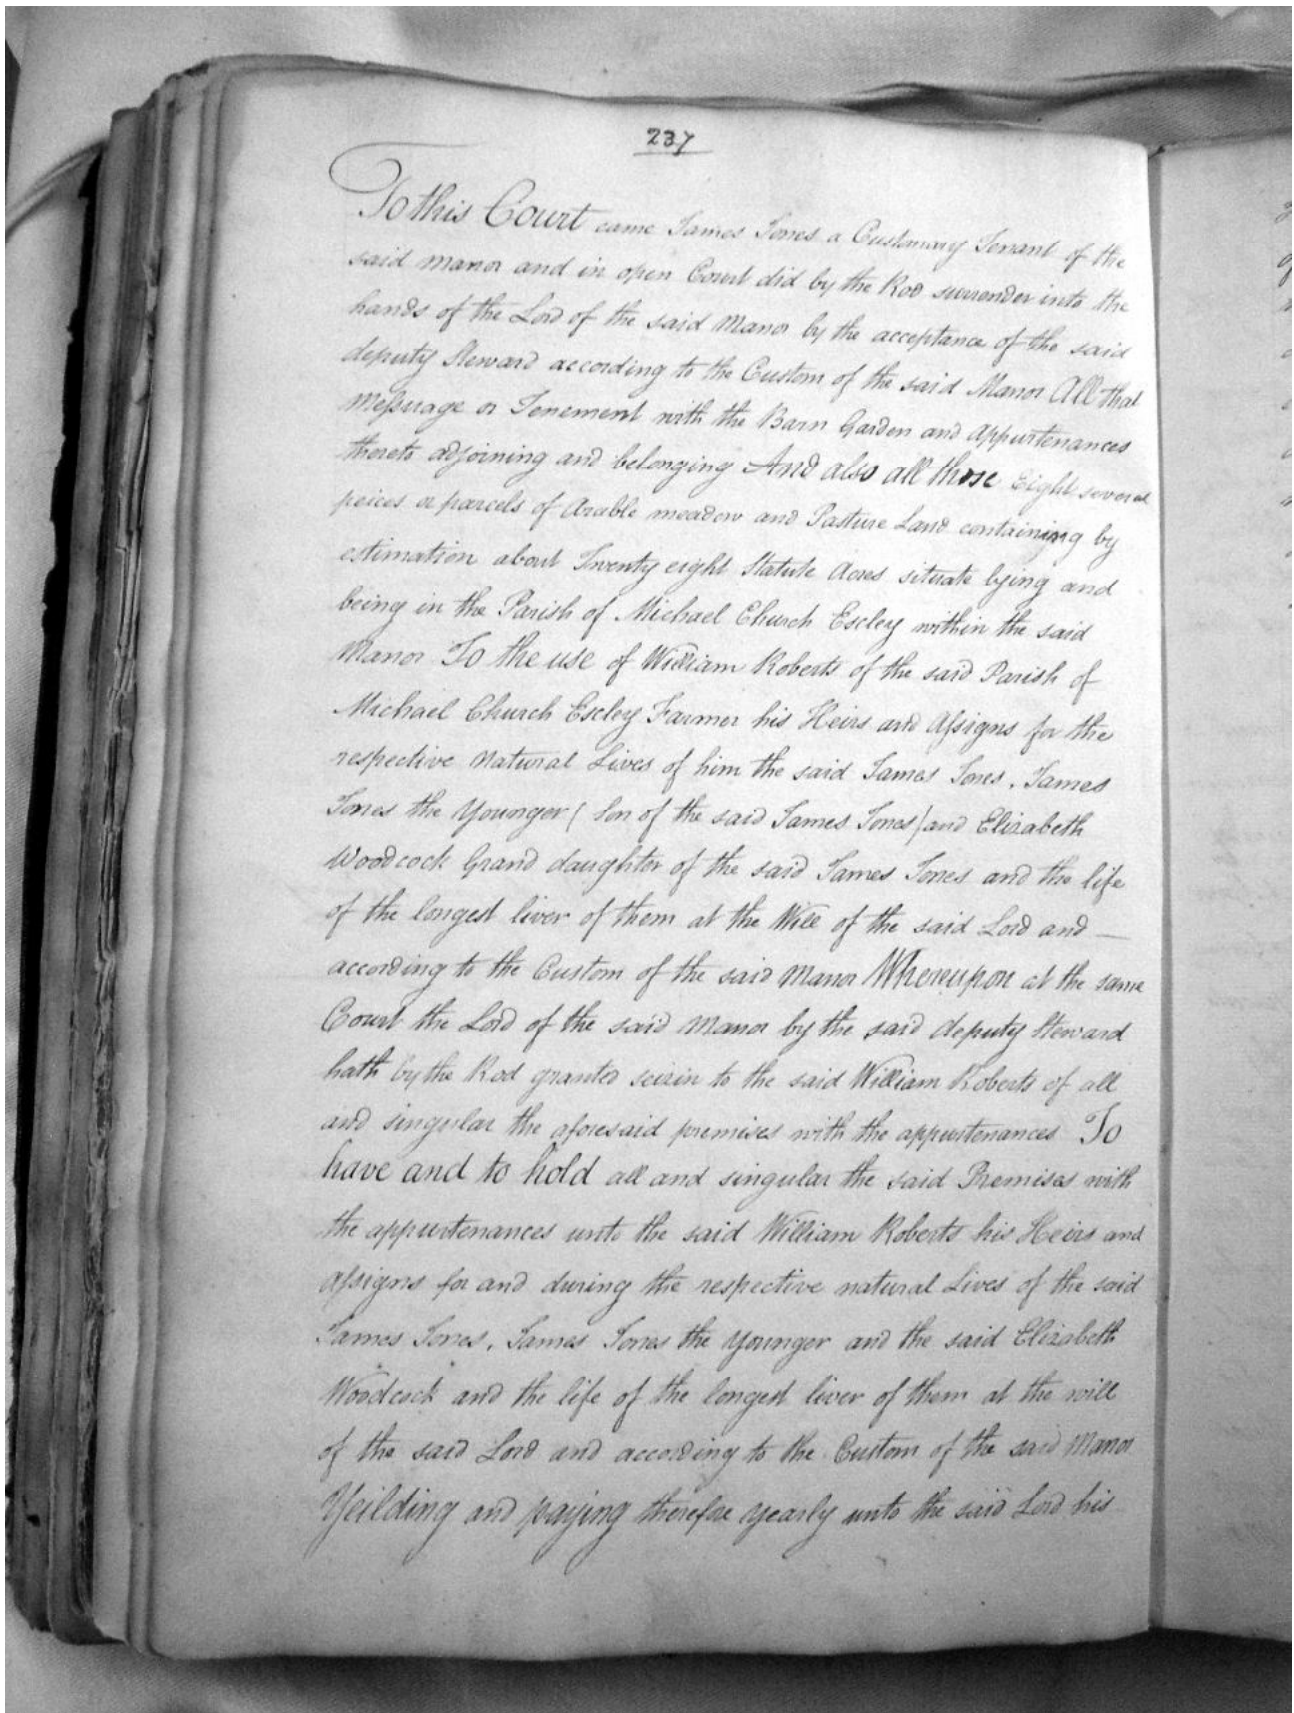 237
To this Court came James Jones a Customary Tenant of the
said manor and in open Court did by the Rod surrender into the
hands of the Lord of the said Manor by the acceptance of the said
deputy Steward according to the Custom of the said Manor All that
Messuage or Tenement with the Barn Garden and appurtenances
thereto adjoining and belonging And also all those Eight several
peices or parcels of Arable meadow and Pasture Land containing by
estimation about Twenty eight Statute Acres situate lying and
being in the Parish of Michael Church Escley within the said
Manor To the use of William Roberts of the said Parish of
Michael Church Escley Farmer his Heirs and Assigns for the
respective Natural Lives of him the said James Jones, James
Jones the Younger ( Son of the said James Jones ) and Elizabeth
Woodcock Grand daughter of the said James Jones and the life
of the longest liver of them at the Will of the said Lord and —
according to the Custom of the said Manor Whereupon at the same
Court the Lord of the said Manor by the said deputy Steward
hath by the Rod granted seizin to the said William Roberts of all
and singular the aforesaid premises with the appurtenances To
have and to hold all and singular the said Premises with
the appurtenances unto the said William Roberts his Heirs and
assigns for and during the respective natural Lives of the said
James Jones, James Jones the Younger and the said Elizabeth
Woodcock and the life of the longest liver of them at the will
of the said Lord and according to the Custom of the said Manor
Yeilding and paying therefore yearly unto the said Lord his